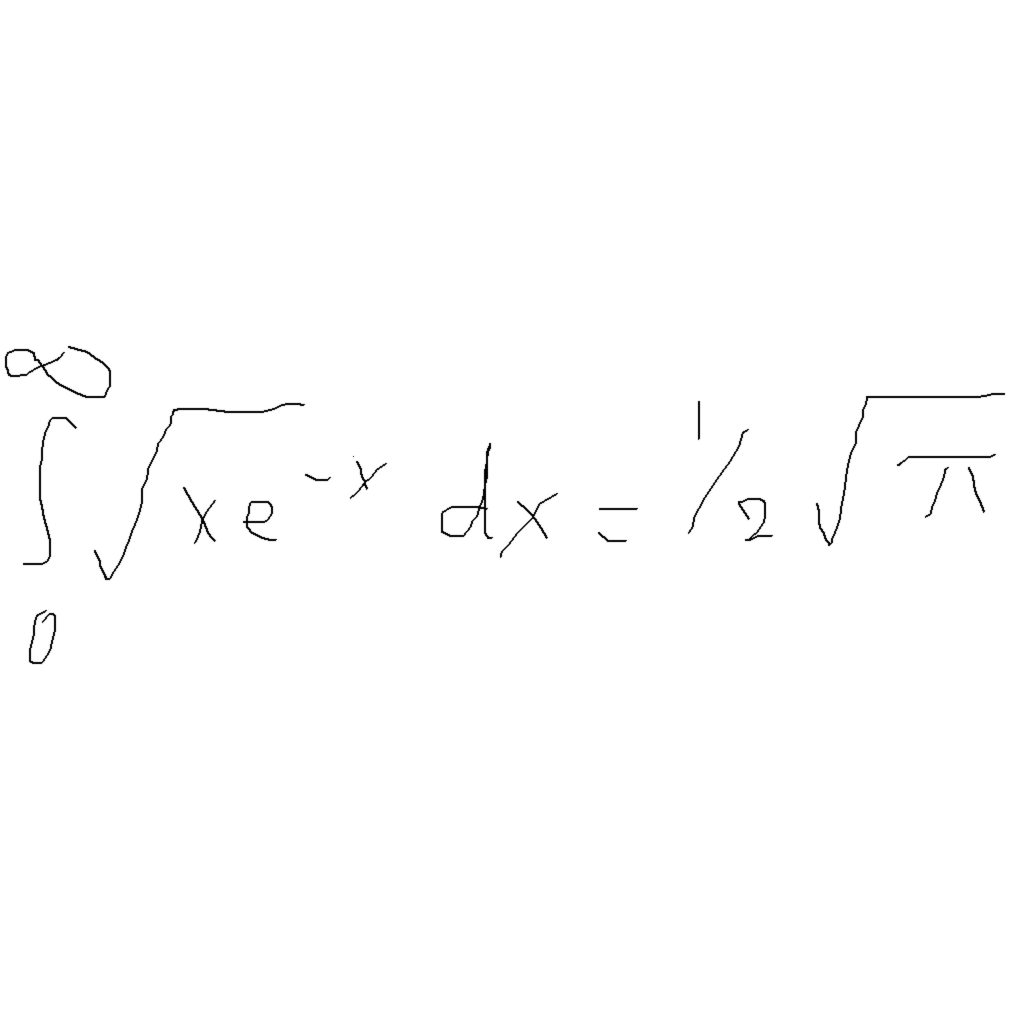 ∫₀^∞ √xe⁻ˣ dx = 1/2 √π